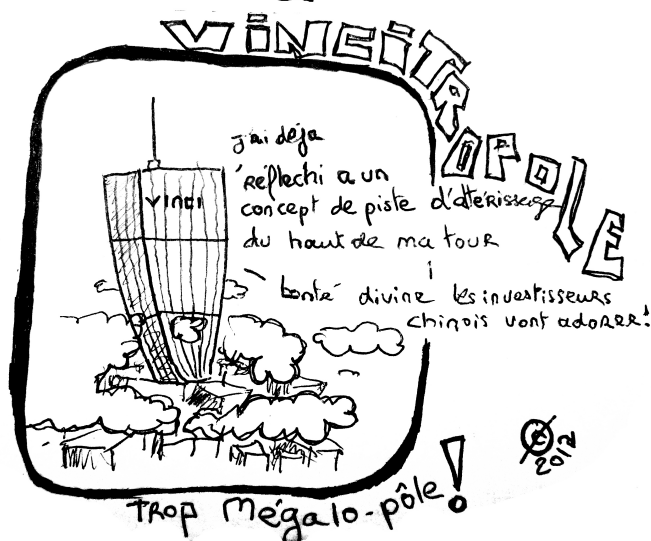 VINCITROPOLE
j'ai déja
réflechi a un
concept de piste d'attérissage
du haut de ma tour
VINCI
bonté divine les investisseurs
chinois vont adorer!
2012
TROP Mégalo-pôle!